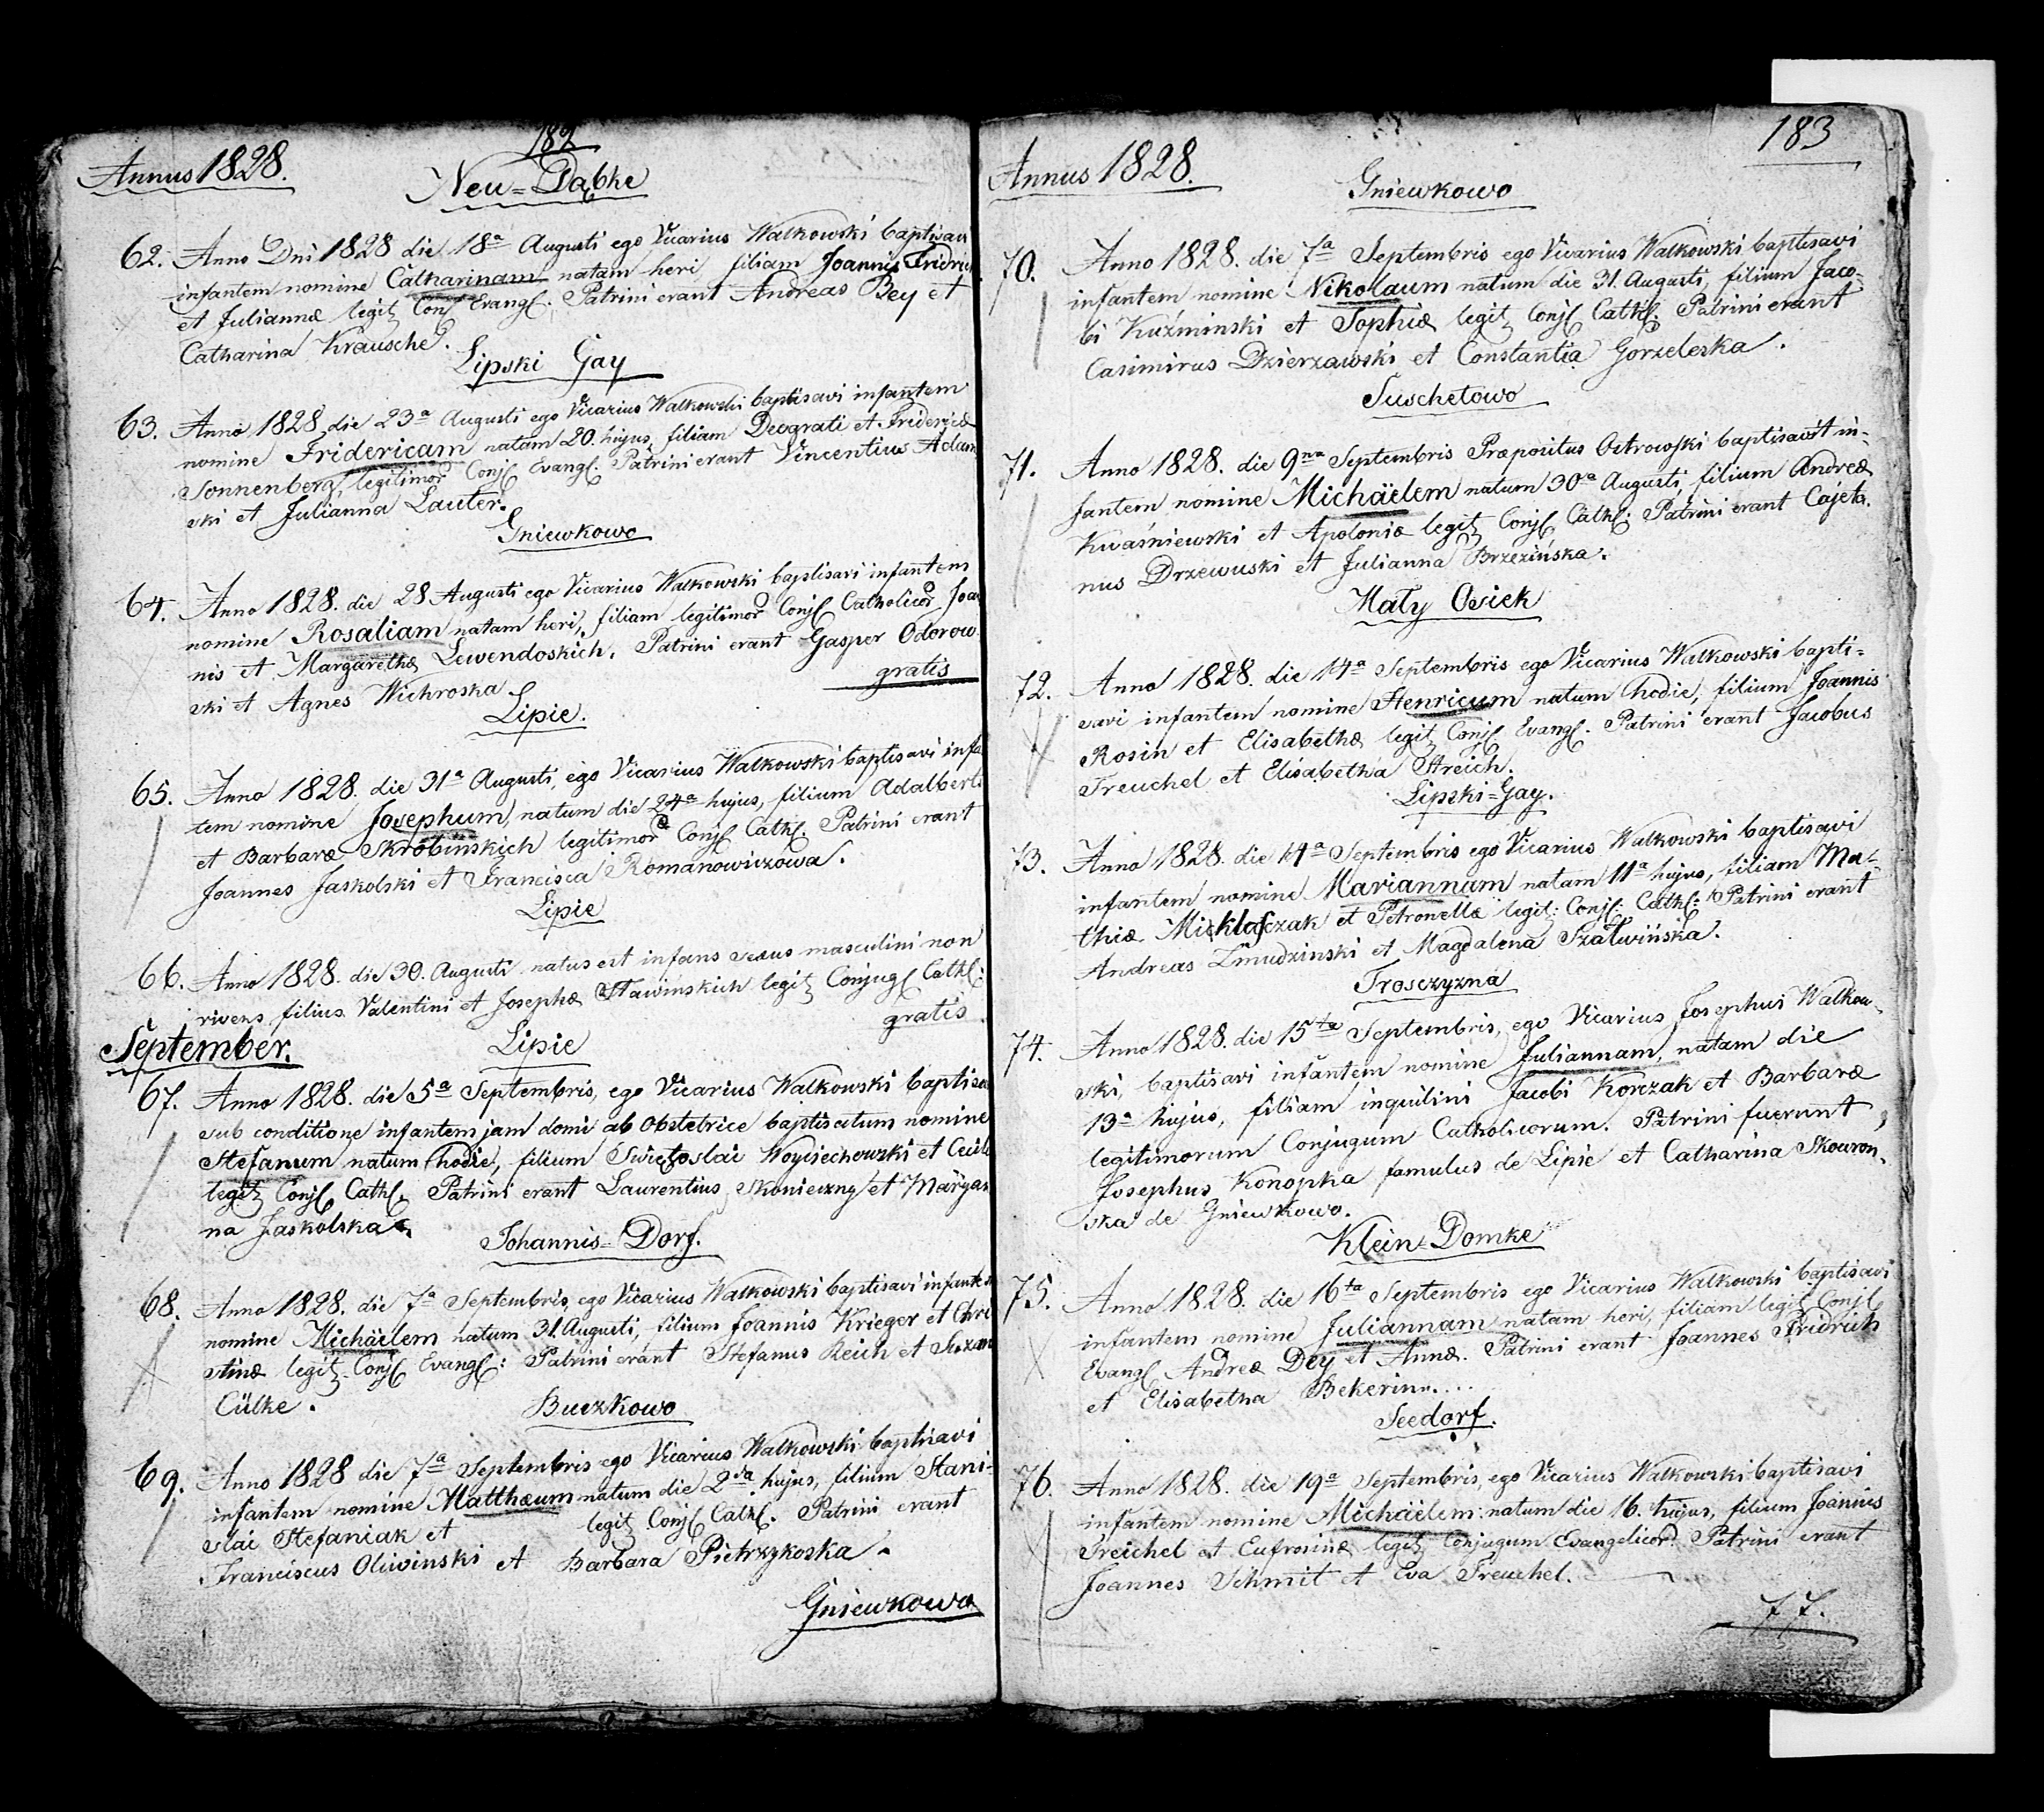 182
Annus 1828.
Neu=Dąbke
62. Anno Dni 1828 die 18a Augusti ego Vicarius Walkowski baptisavi
infantem nomine Catharinam natam heri, filiam Joannis Fridrich
et Juliannæ legit Conj Evang: Patrini erant Andreas Bey et
Catharina Krausche.
Lipski Gay
63. Anno 1828 die 23a Augusti ego Vicarius Walkowski baptisavi infantem
nomine Fridericam natam 20. hujus, filiam Deograti et Fridericæ
Sonnenberg, legitimor Conj Evang. Patrini erant Vincentius Adam
ski et Julianna Lauter.
Gniewkowo
64. Anno 1828. die 28 Augusti ego Vicarius Walkowski baptisavi infantem
nomine Rosaliam natam heri, filiam legitimor Conj Catholicor Joan
nis et Margarethæ Lewendoskich. Patrini erant Gasper Odorow
ski et Agnes Wichroska
gratis
Lipie.
65. Anno 1828. die 31a Augusti, ego Vicarius Walkowski baptisavi infa
tem nomine Josephum, natum die 24a hujus, filium Adalberti
et Barbaræ Skrobinskich legitimor Conj Cath. Patrini erant
Joannes Jaskolski et Francisca Romanowiczowa.
Lipie
66. Anno 1828. die 30. Augusti natus est infans sexus masculini non
vivens filius Valentini et Josephæ Stawinskich legit Conjug Cath:
gratis
September.
Lipie
67. Anno 1828. die 5a Septembris, ego Vicarius Walkowski baptisa
sub conditione infantem jam domi ab Obstetrice baptisatum nomine
Stefanum natum hodie, filium Swiętoslai Woyciechowski et Cecili
legit Conj Cath. Patrini erant Laurentius Skonieczny et Maryan
na Jaskolska.
Johannis=Dorf.
68. Anno 1828. die 7a Septembris, ego Vicarius Walkowski baptisavi infantem
nomine Michäelem natum 31. Augusti, filium Joannis Krieger et Chri
stinæ legit Conj Evang: Patrini erant Stefanus Reich et Suzan
Cülke.
Buczkowo
69. Anno 1828 die 7a Septembris ego Vicarius Walkowski baptisavi
infantem nomine Matthæum natum die 2da hujus, filium Stani-
slai Stefaniak et legit Conj Cath. Patrini erant
Franciscus Oliwinski et Barbara Pietrzykoska.
Gniewkowo
183
Annus 1828.
Gniewkowo
70. Anno 1828. die 7a Septembris ego Vicarius Walkowski baptisavi
infantem nomine Nikolaum natum die 31. Augusti, filium Jaco-
bi Kuźminski et Sophiæ legit Conj Cath: Patrini erant
Casimirus Dzierzawski et Constantia Gorzeleska.
Suschetowo
71. Anno 1828. die 9na Septembris Præpositus Ostrowski baptisavit in-
fantem nomine Michäelem natum 30a Augusti, filium Andreæ
Kwaśniewski et Apoloniæ legit Conj Cath: Patrini erant Cajeta.
nus Drzewuski et Julianna Brzezińska.
Mały Osiek
72. Anno 1828. die 14a Septembris ego Vicarius Walkowski bapti=
savi infantem nomine Henricum natum hodie, filium Joannis
Rosin et Elisabethæ legit Conj Evang. Patrini erant Jacobus
Treuchel et Elisabetha Streich.
Lipski=Gay.
73. Anno 1828. die 14a Septembris ego Vicarius Walkowski baptisavi
infantem nomine Mariannam natam 11a hujus, filiam Ma-
thiæ Micklasczak et Petronellæ legit: Conj: Cath: Patrini erant
Andreas Zmudzinski et Magdalena Szałwińska.
Trosczyzna
74. Anno 1828. die 15ta Septembris, ego Vicarius Josephus Walkow-
ski, baptisavi infantem nomine Juliannam, natam die
13a hujus, filiam inquilini Jacobi Korczak et Barbaræ
legitimorum Conjugum Catholicorum. Patrini fuerunt,
Josephus Konopka famulus de Lipie et Catharina Skowron-
ska de Gniewkowo.
Klein=Domke
75. Anno 1828. die 16ta Septembris ego Vicarius Walkowski baptisavi
infantem nomine Juliannam natam heri, filiam legit Conj
Evang Andreæ Dey et Annæ. Patrini erant Joannes Fridrich
et Elisabetha Bekerinn....
Seedorf.
76. Anno 1828. die 19a Septembris, ego Vicarius Walkowski baptisavi
infantem nomine Michäelem natum die 16. hujus, filium Joannis
Treichel et Eufrosinæ legit Conjugum Evangelicor Patrini erant
Joannes Schmit et Eva Treuchel.
77.